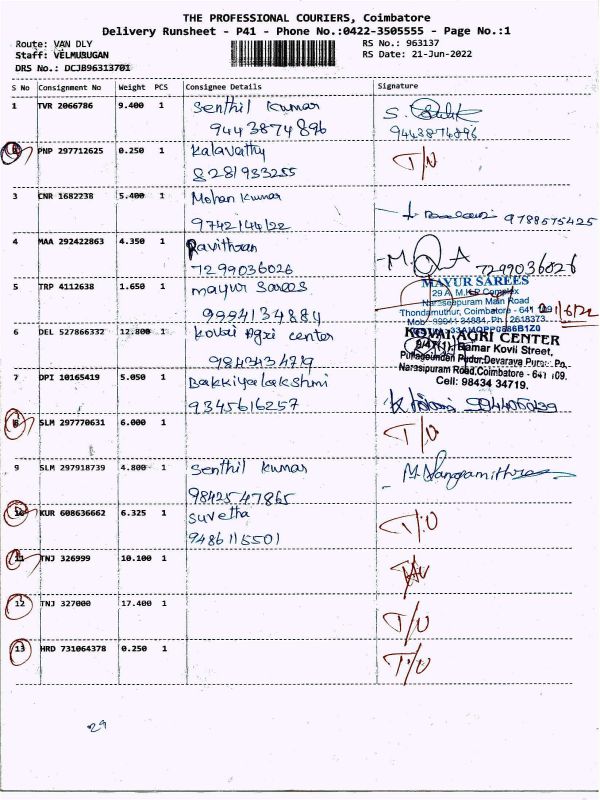 THE PROFESSIONAL COURIERS, Coimbatore
Delivery Runsheet - P41 - Phone No.:0422-3505555 - Page No.:1
Route: VAN DLY
Staff: VELMURUGAN
DRS No.: DCJB96313701
RS No.: 963137
RS Date: 21-Jun-2022
S No Consignment No Weight PCS Consignee Details Signature
1 TVR 2066786 9.400 1 Senthil Kumar
9443874896 9443874896
PNP 297712625 0.250 1 Kalavathy T/U
8281933255
3 CNR 1682238 5.400 1 Mohan Kumar
9742144122 9788575425
4 MAA 292422863 4.350 1 Pavithran
7299036026 7299036026
5 TRP 4112638 1.650 1 Mayur Sarees
9994134884
MAYUR SAREES
Narasipuram Main Road
Thondamuthur, Coimbatore - 641 109
21/6/22
6 DEL 527866332 12.800 1 Kovai Agri center
9843434719
KOVAI AGRI CENTER
Ramar Kovil Street,
Narasipuram Road, Coimbatore - 641 109.
Cell: 98434 34719.
7 DPI 10165419 5.050 1 Bakkiyalakshmi
9345616257
8 SLM 297770631 6.000 1 T/U
9 SLM 297918739 4.800 1 Senthil Kumar M. Sangamithra
9842547865
10 KUR 608636662 6.325 1 Suvetha T/U
9486115501
11 TNJ 326999 10.100 1
12 TNJ 327000 17.400 1 T/U
13 HRD 731064378 0.250 1 T/U
29